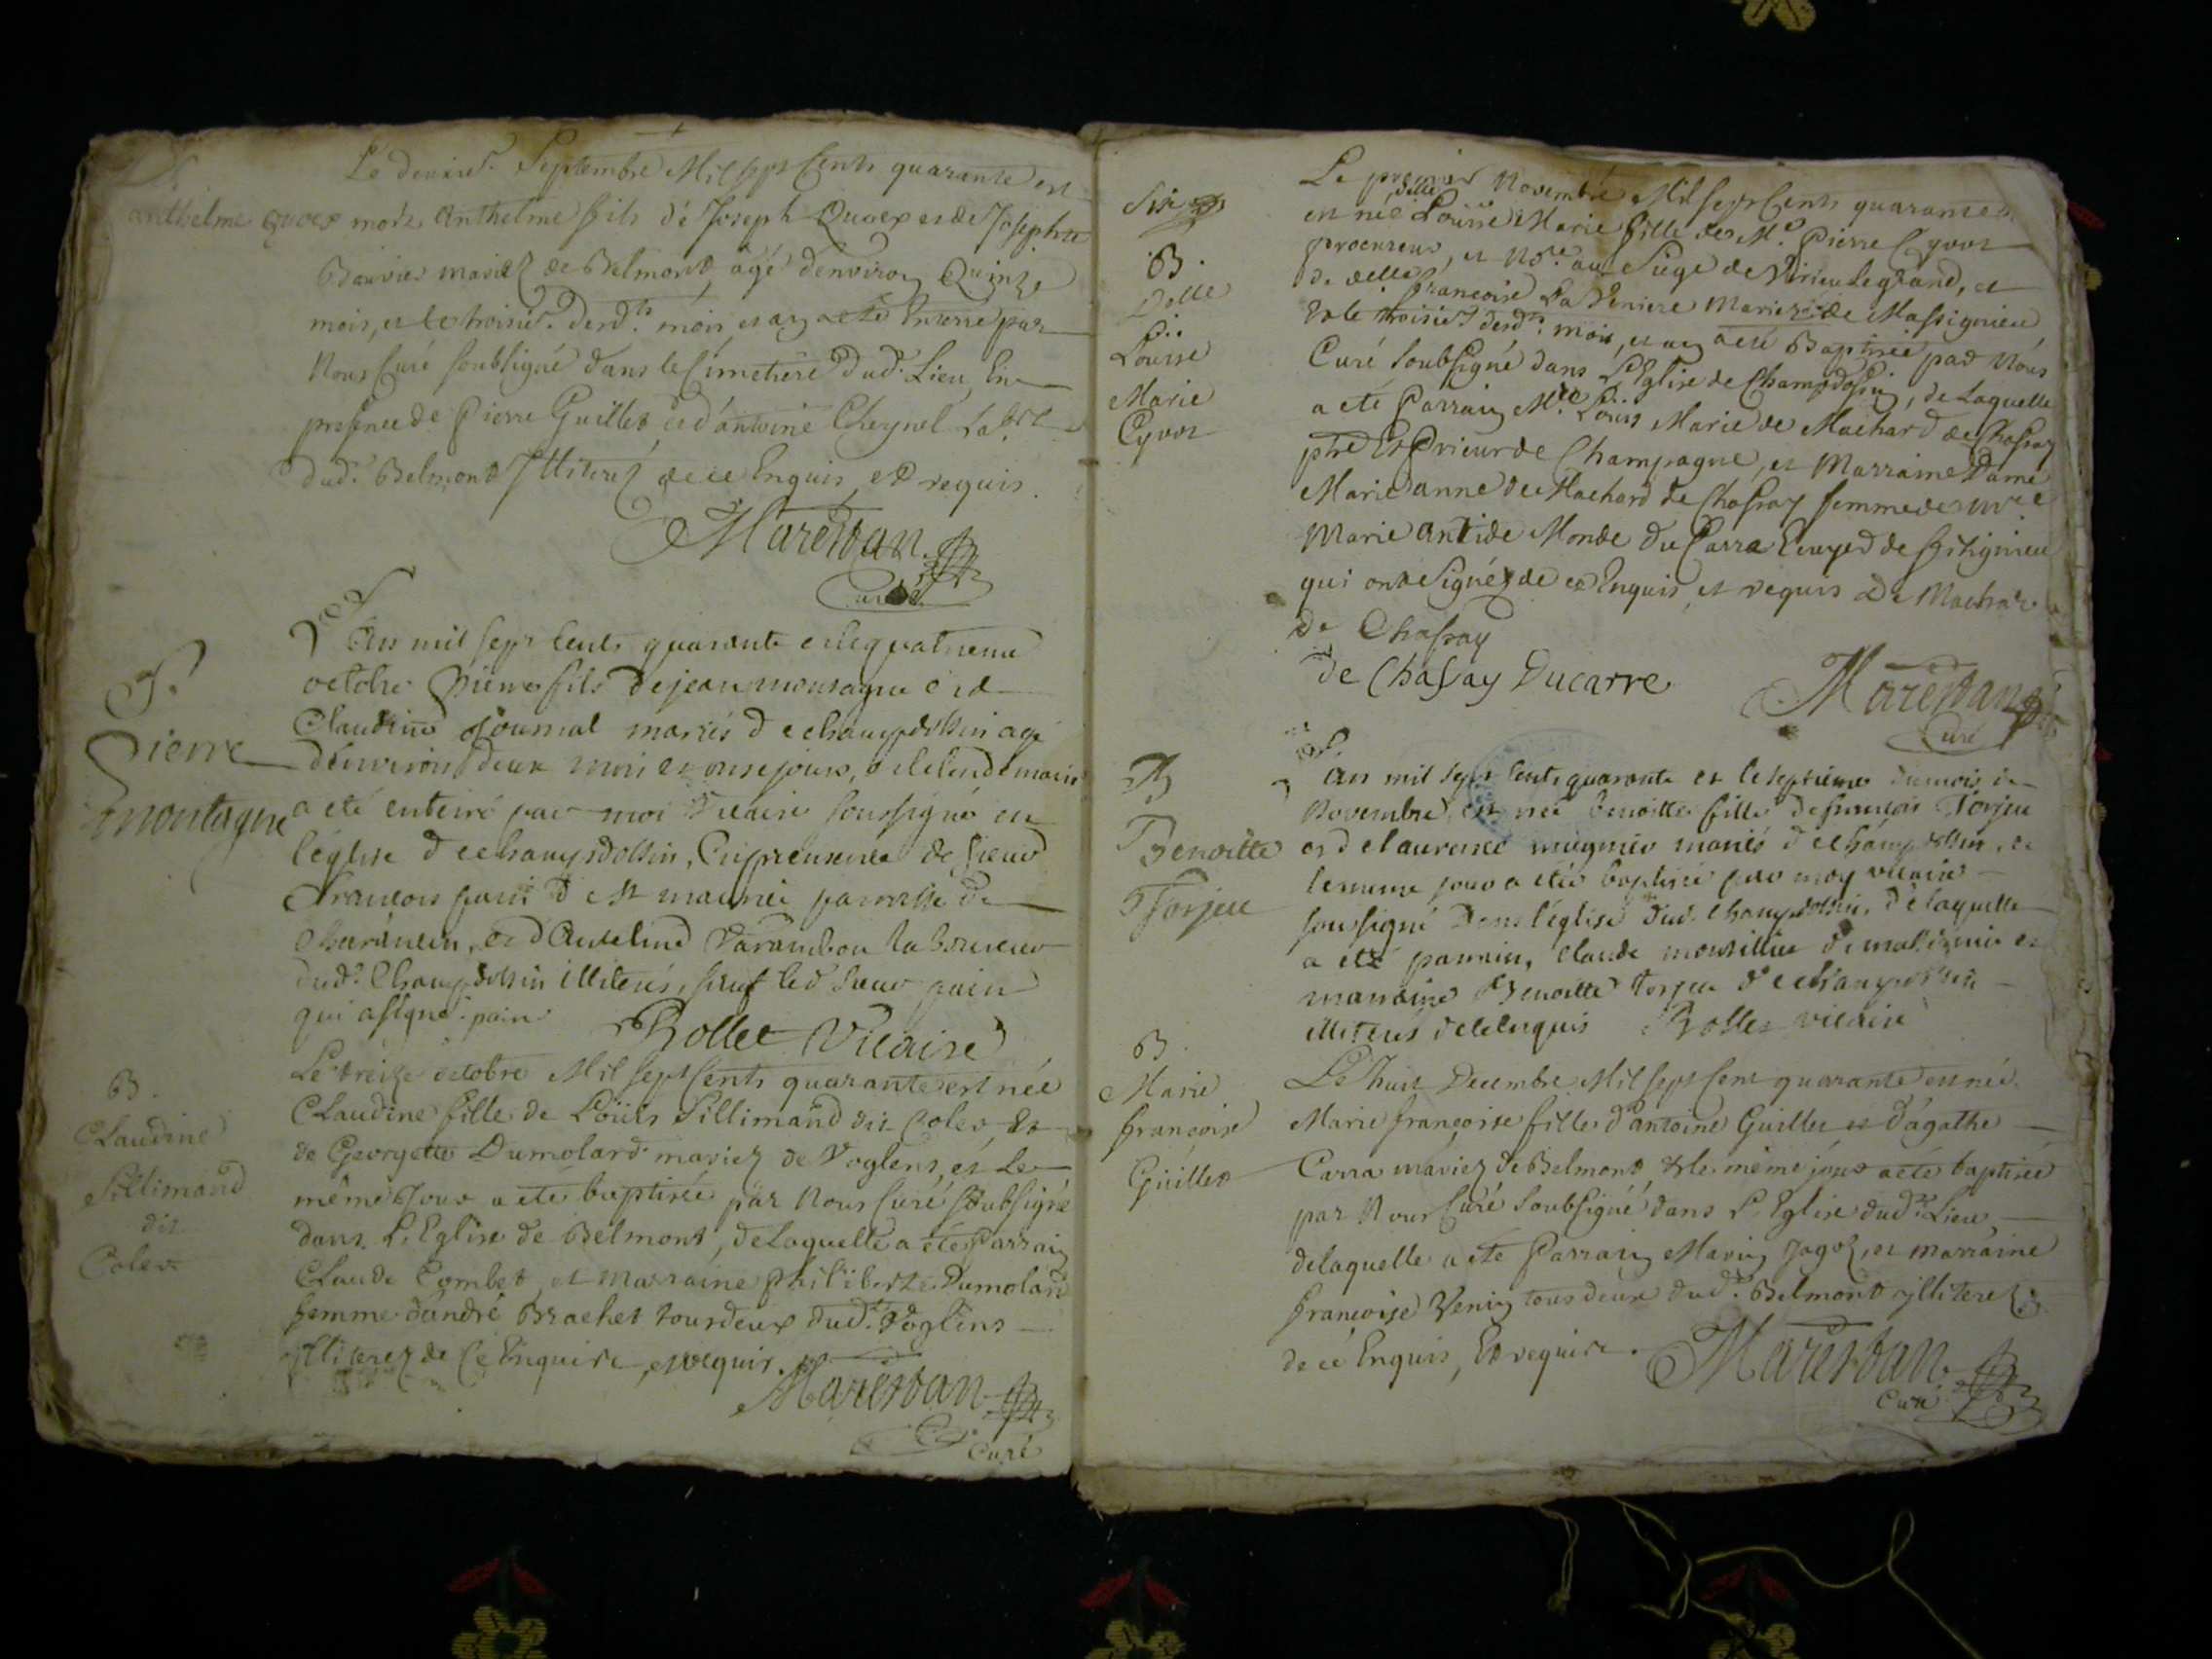 Le deuxie. Septembre Mil sept Cents quarante est
anthelme quoex
mort Anthelme fils dé Joseph Quoex et de Josephte
mariez de Belmont, agé d'environ Quinze
mois, et le troisie. desd.ts mois, et an a eté Enterré par
Nous Curé soubsigné dans le Cimetiére dud. Lieu, En
presence de Pierre Guillet et d'antoine Cheynel
dud. Belmont Illiterez de ce Enquis et requis.
Marestan
Curé
L'an mil sept cents quarante et le quatrieme
S.
octobre Pierre fils de jean montagne et de
Claudine Journal mariés de champdossin agé
Pierre
d'environ deux mois et onse jours, et le lendemain
montagne
a eté enterré par moi Vicaire soussigné en
l'église de champdossin, En presence de sieur
francois pain de st maurice parroisse de
et d'Anselme Varambon laboureur
dud. Champdossin illiterés, sauf led sieur pain
qui a signé. pain Rollet Vicaire
Le treize octobre Mil sept Cents quarante est née
B.
Claudine
Sillimand
dit
Colet
Claudine fille de Loüis Sillimand dit Colet et
de Georgette Dumolard mariez de Voglens, et le
même Jour a eté baptisée par Nous Curé soubsigné
dans L'Eglise de Belmont, de Laquelle a eté Parrain
Claude Combet, et Marraine philiberte Dumolard
femme d'andré Brachet tous deux dud. Voglens
illiterez de ce Enquis, et requis.
Marestan
Curé
Six
B.
Delle
Louise
Marie
Cyvot
Le premier Novembre Mil sept Cents quarante
est née delle Loüise Marie fille de Me. Pierre Cyvot
procureur, et No.re au Siege de Virieu le grand, et
de delle françoise La Veniere Mariez de Massignieu
Et le troisie. desd. mois, et an a eté Baptisée par Nous
Curé soubsigné dans L'Eglise de Champdossin, de Laquelle
a eté Parrain Mre. Loüis Marie de Machard de Chassay
ptre Et Prieur de Champagne, et Marraine Dame
Marie anne de Machard de Chassay femme de Mre
Marie antide Monde du Carra Ecuyer de Fitignieu
qui ont signéz de ce Enquis, et requis De Machar
de Chassay
de Chassay Ducarre
Marestan
Curé
L'an mil sept cents quarante et le septieme du mois de
B
Benoitte
Torjeu
Novembre, est née benoitte fille de francois Torjeu
et de laurence mugnier mariés de champdossin, et
le meme jour a eté baptisée par moy vicaire
soussigné dans l'église dud. champdossin, de laquelle
a eté parrain, Claude et
marraine Benoitte torjeu de champdossin
illiterés de ce enquis Rollet vicaire
B.
Marie
françoise
Guillet
Le huit Decembre Mil sept Cent quarante est née
Marie françoise fille d'antoine Guillet et d'agathe
Carra mariez de Belmont, & le même jour a eté baptisée
par Nous Curé soubsigné dans L'Eglise dud. Lieu,
de laquelle a eté Parrain Marin Jagoz, et marraine
françoise Venin tous deux dud. Belmont illiterez
de ce Enquis, Et requis.
Marestan
Curé